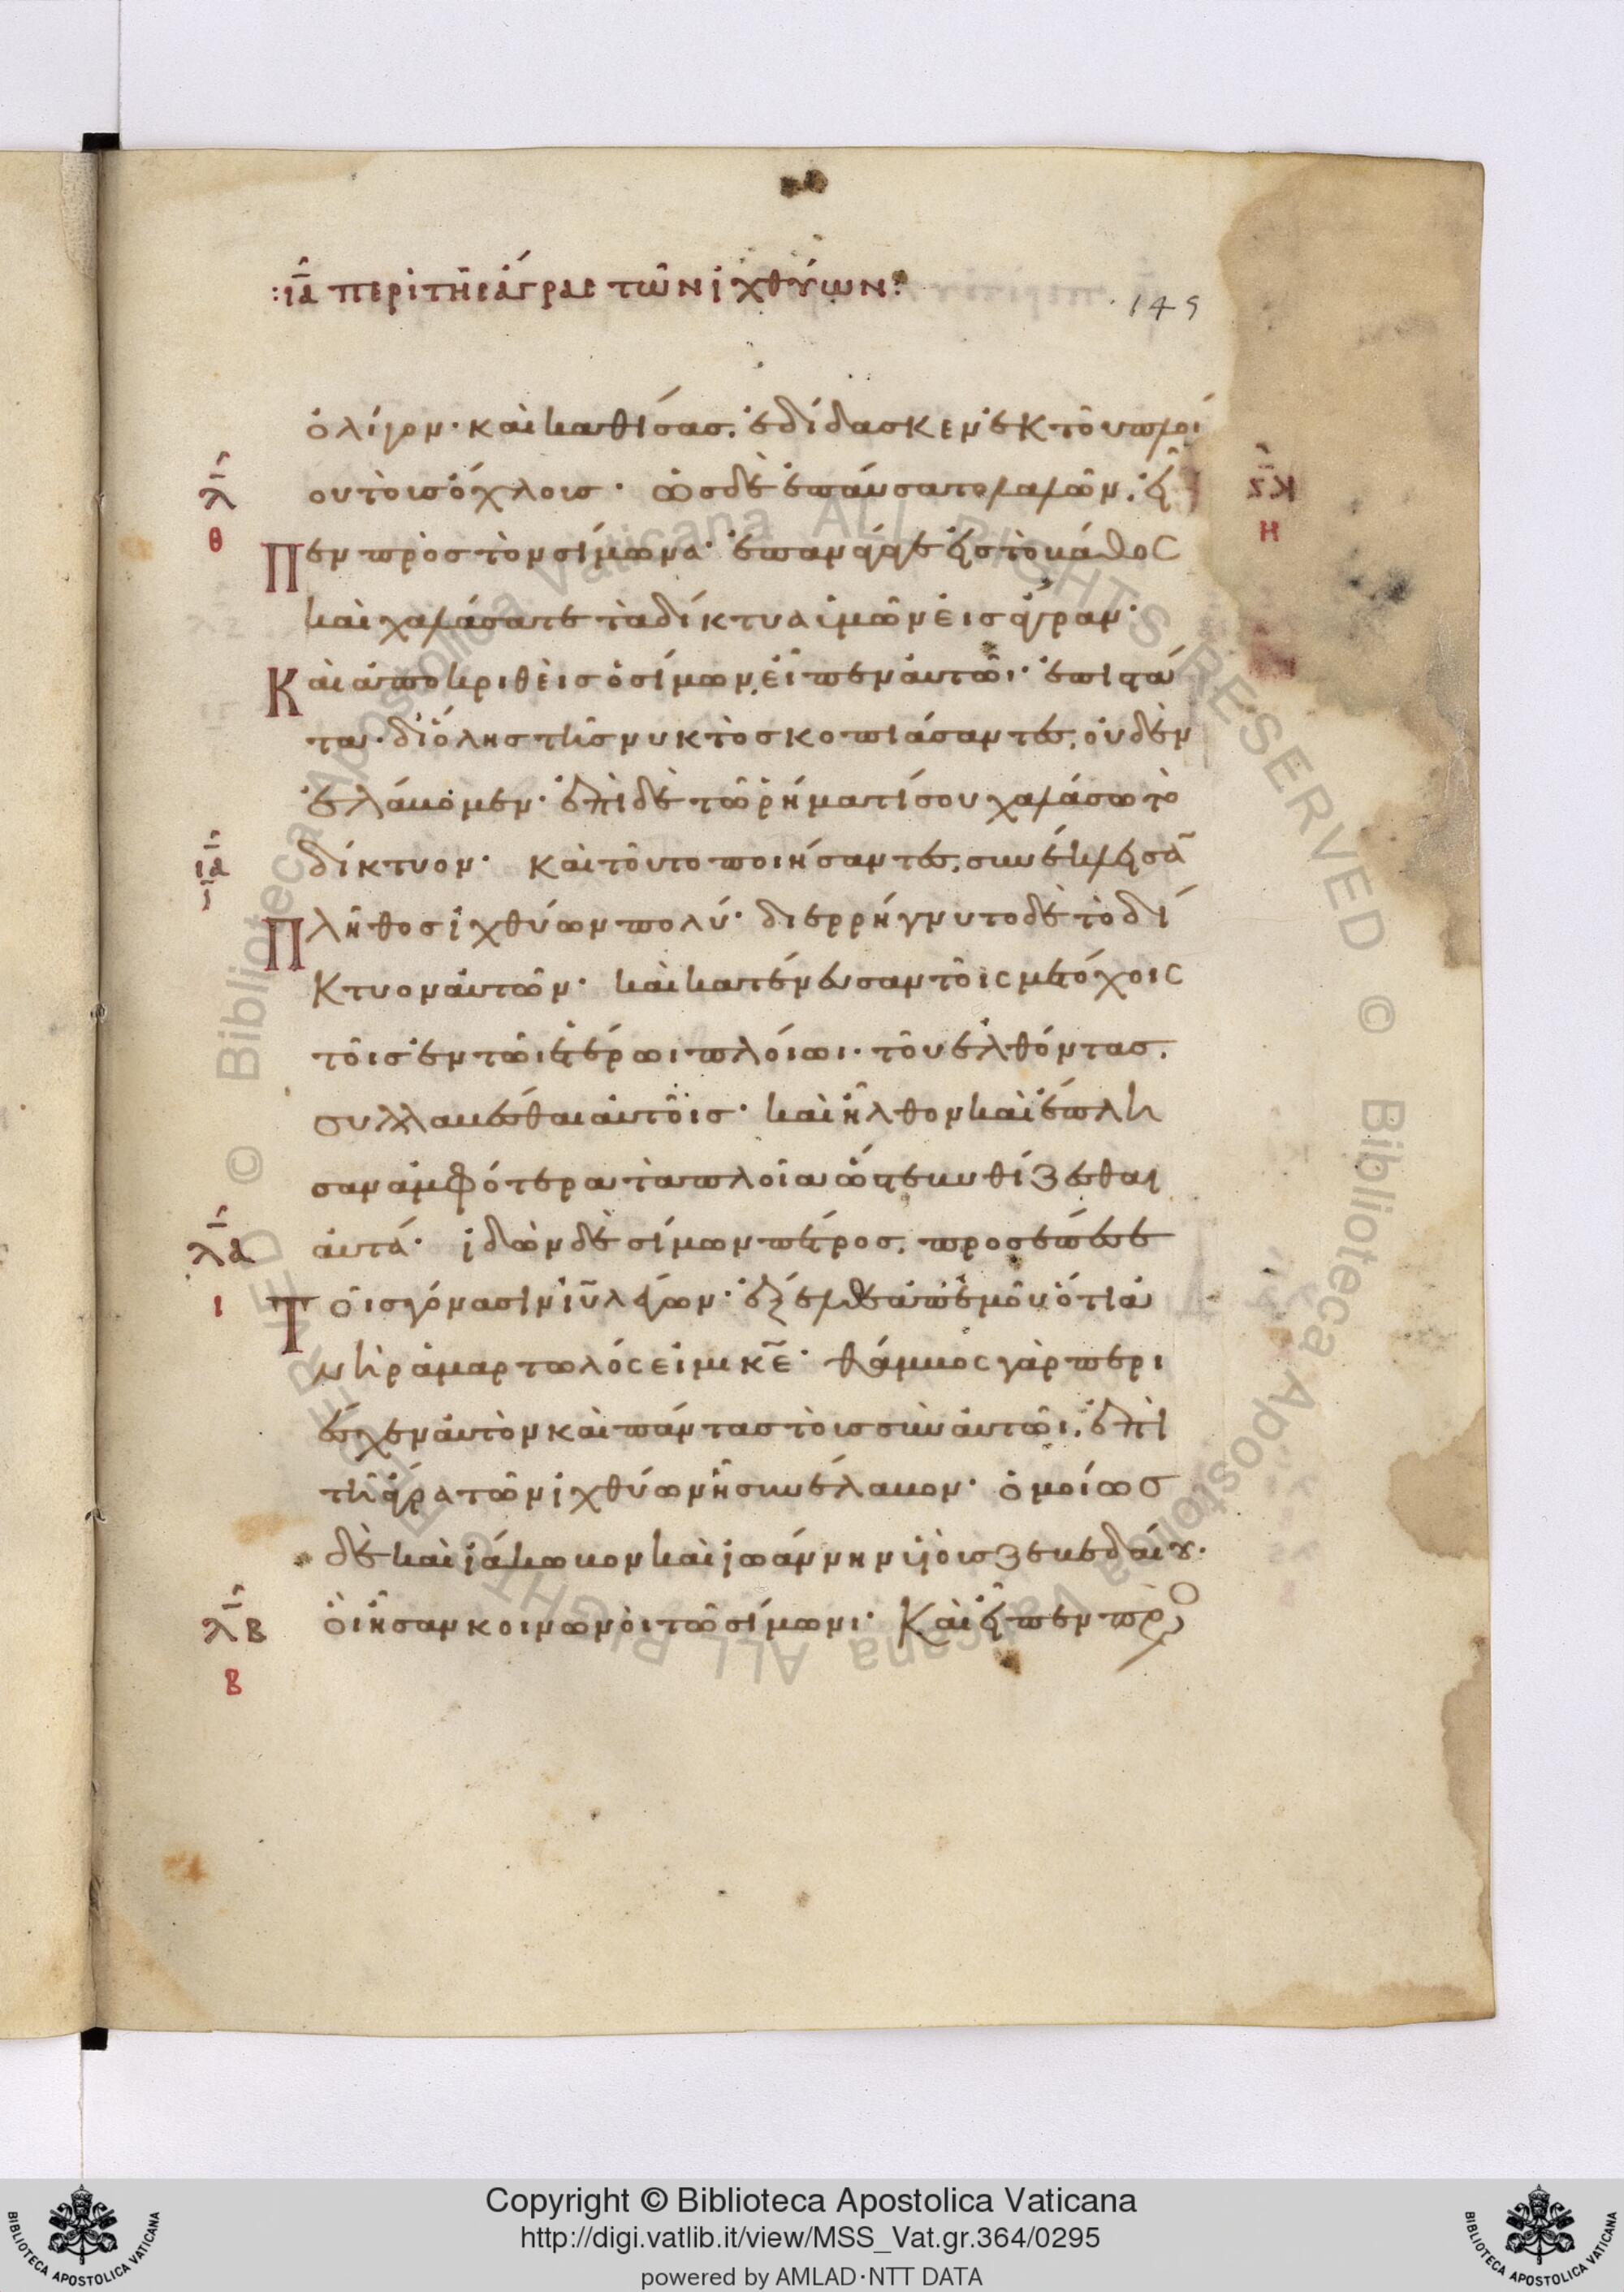 :ια περὶ τῆς ἄγρας των ἰχθύων:
145
ὀλίγον· καὶ καθίσας, ἐδίδασκεν ἐκ τοῦ πλοί
ου τοὺς ὄχλους· ὡς δὲ ἐπαύσατο λαλῶν, εἶ
λ
θ
πεν πρὸς τὸν σίμωνα· ἐπανάγαγε εἰς τὸ βάθος
καὶ χαλάσατε τὰ δίκτυα ὑμῶν εἰς ἄγραν·
Καὶ ἀποκριθεὶς ὁ σίμων, εἶπεν αὐτῶι· ἐπιστά
τα· δι' ὅλης τῆς νυκτὸς κοπιάσαντες, οὐδὲν
ἐλάβομεν· ἐπὶ δὲ τῶ ῥήματί σου χαλάσω τὸ
ια
ι
δίκτυον· καὶ τοῦτο ποιήσαντες, συνέκλεισα̅
Πλῆθος ἰχθύων πολύ· διερρήγνυτο δὲ τὸ δί
κτυον αὐτῶν· καὶ κατένευσαν τοῖς μετόχοις
τοῖς ἐν τῶι ἑτέρωι πλοίωι· τοῦ ἐλθόντας,
συλλαβέσθαι αὐτοῖς· καὶ ἦλθον καὶ ἔπλη
σαν ἀμφότερα τὰ πλοῖα ὥστε βυθίζεσθαι
λα
ι
αὐτά· ἰδὼν δὲ σίμων πέτρος, προσέπεσε
Τοῖς γόνασιν ἰυ̅ λέγων· ἔξελθε ἀπ' ἐμοῦ ὅτι ἀ
νὴρ ἁμαρτωλός εἰμι κε̅· θάμβος γὰρ περι
έσχεν αὐτὸν καὶ πάντας τοὺς σὺν αὐτῶι, ἐπὶ
τῆ ἄγρα τῶν ἰχθύων ἧ συνέλαβον· ὁμοίως
δὲ καὶ ἰάκωβον καὶ ἰωάννην υἱοὺς ζεβεδαίου·
λβ
β
οἳ ἦσαν κοινωνοὶ τῶ σίμωνι· Καὶ εἶπεν πρὸ
Copyright © Biblioteca Apostolica Vaticana
http://digi.vatlib.it/view/MSS_Vat.gr.364/0295
powered by AMLAD·NTT DATA
BIBLIOTECA APOSTOLICA VATICANA
BIBLIOTECA APOSTOLICA VATICANA
© Biblioteca Apostolica Vaticana ALL RIGHTS RESERVED © Biblioteca Apostolica Vaticana ALL RIGHTS RESERVED